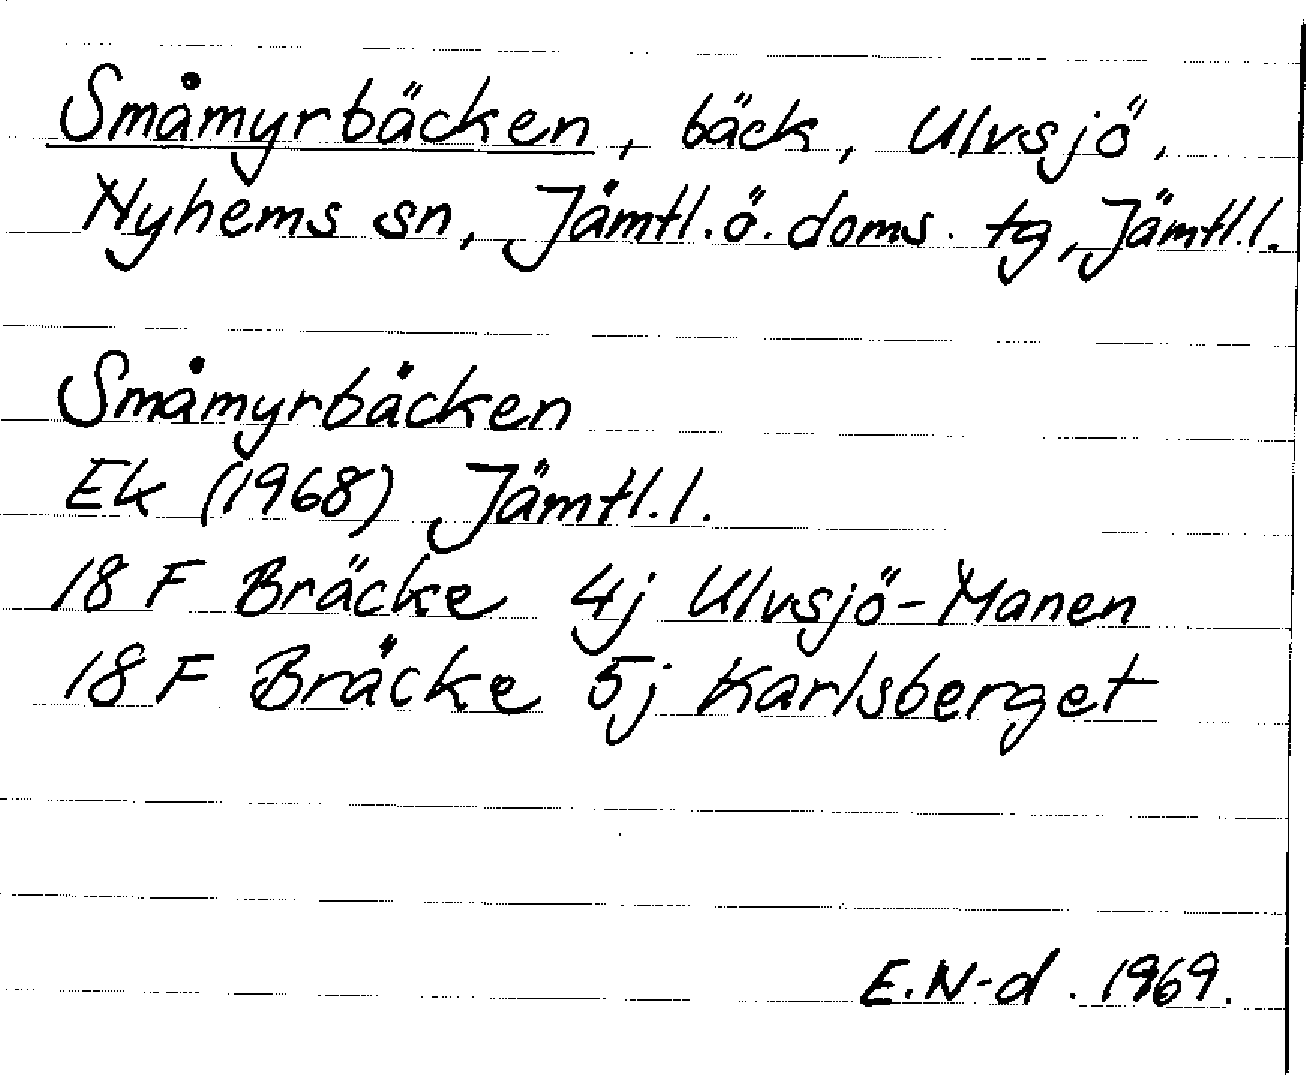 Småmyrbäcken, bäck, Ulvsjö,
Nyhems sn, Jämtl.ö.doms.tg, Jämtl.l.
Småmyrbäcken
Ek (1968) Jämtl.l.
18 F Bräcke 4j Ulvsjö-Manen
18 F Bräcke 5j Karlsberget
E.N-d. 1969.